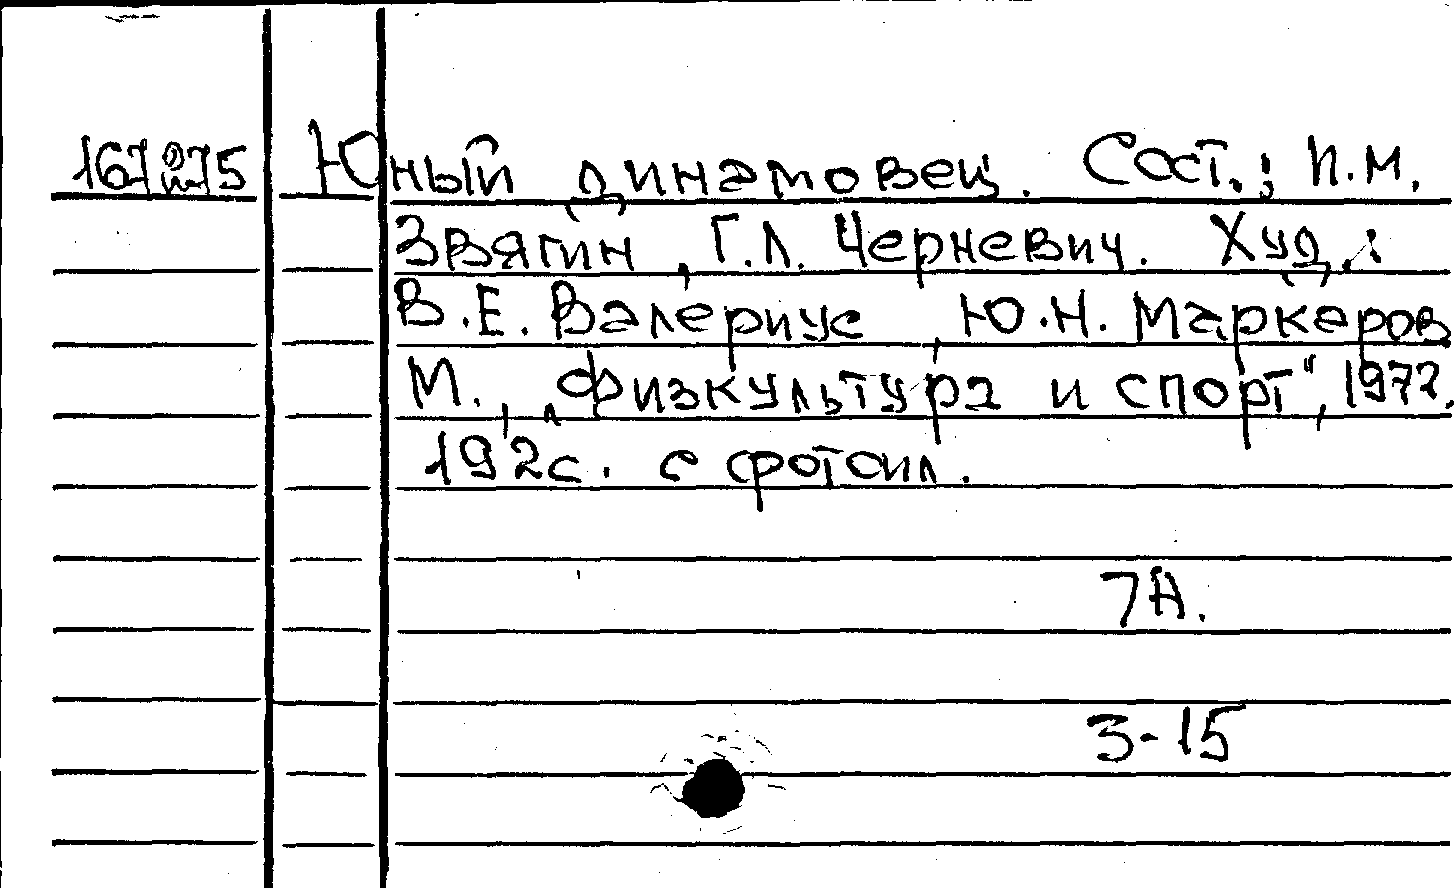 167275 Юный динамовец. Сост.: П.М.
Звягин, Г.Л. Черневич. Худ.:
В.Е. Валериус, Ю.Н. Маркеров
М., „Физкультура и спорт", 1972.
192с. с фотоил.
7А.
3-15